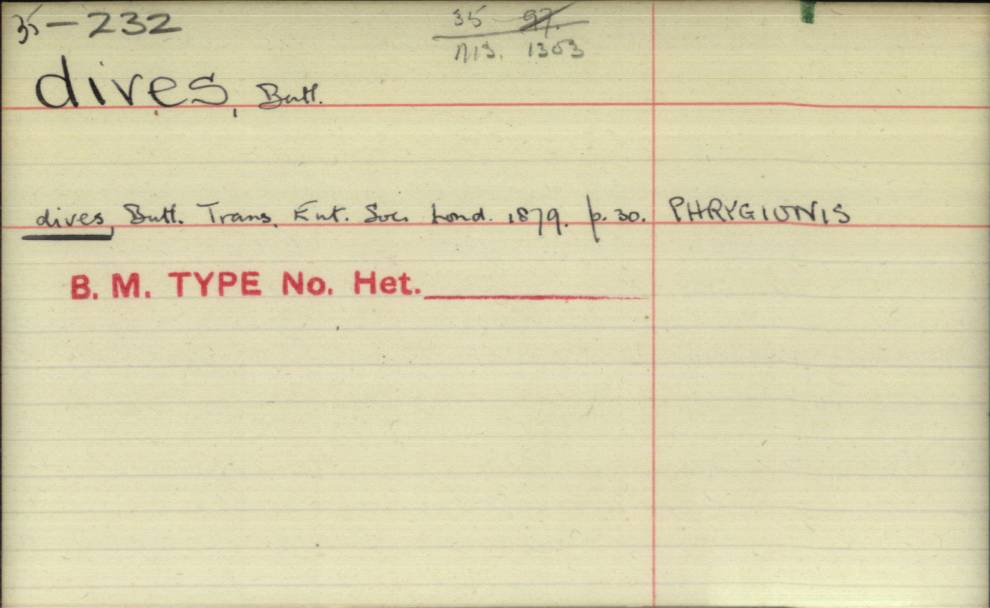 35-232
35 97.
MS. 1303
dives, Butl.
dives, Butl. Trans. Ent. Soc. Lond. 1879. p. 30. PHRYGIONIS
B. M. TYPE No. Het.